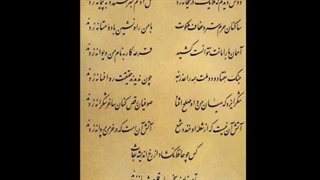 دوش دیدم که ملایک در میخانه زدند گل آدم بسرشتند و به پیمانه زدند
ساکنان حرم ستر و عفاف ملکوت با من راه نشین باده مستانه زدند
آسمان بار امانت نتوانست کشید قرعه کار به نام من دیوانه زدند
جنگ هفتاد و دو ملت همه را عذر بنه چون ندیدند حقیقت ره افسانه زدند
شکر ایزد که میان من و او صلح افتاد صوفیان رقص کنان ساغر شکرانه زدند
آتش آن نیست که از شعله او خندد شمع آتش آن است که در خرمن پروانه زدند
کس چو حافظ نگشاد از رخ اندیشه نقاب